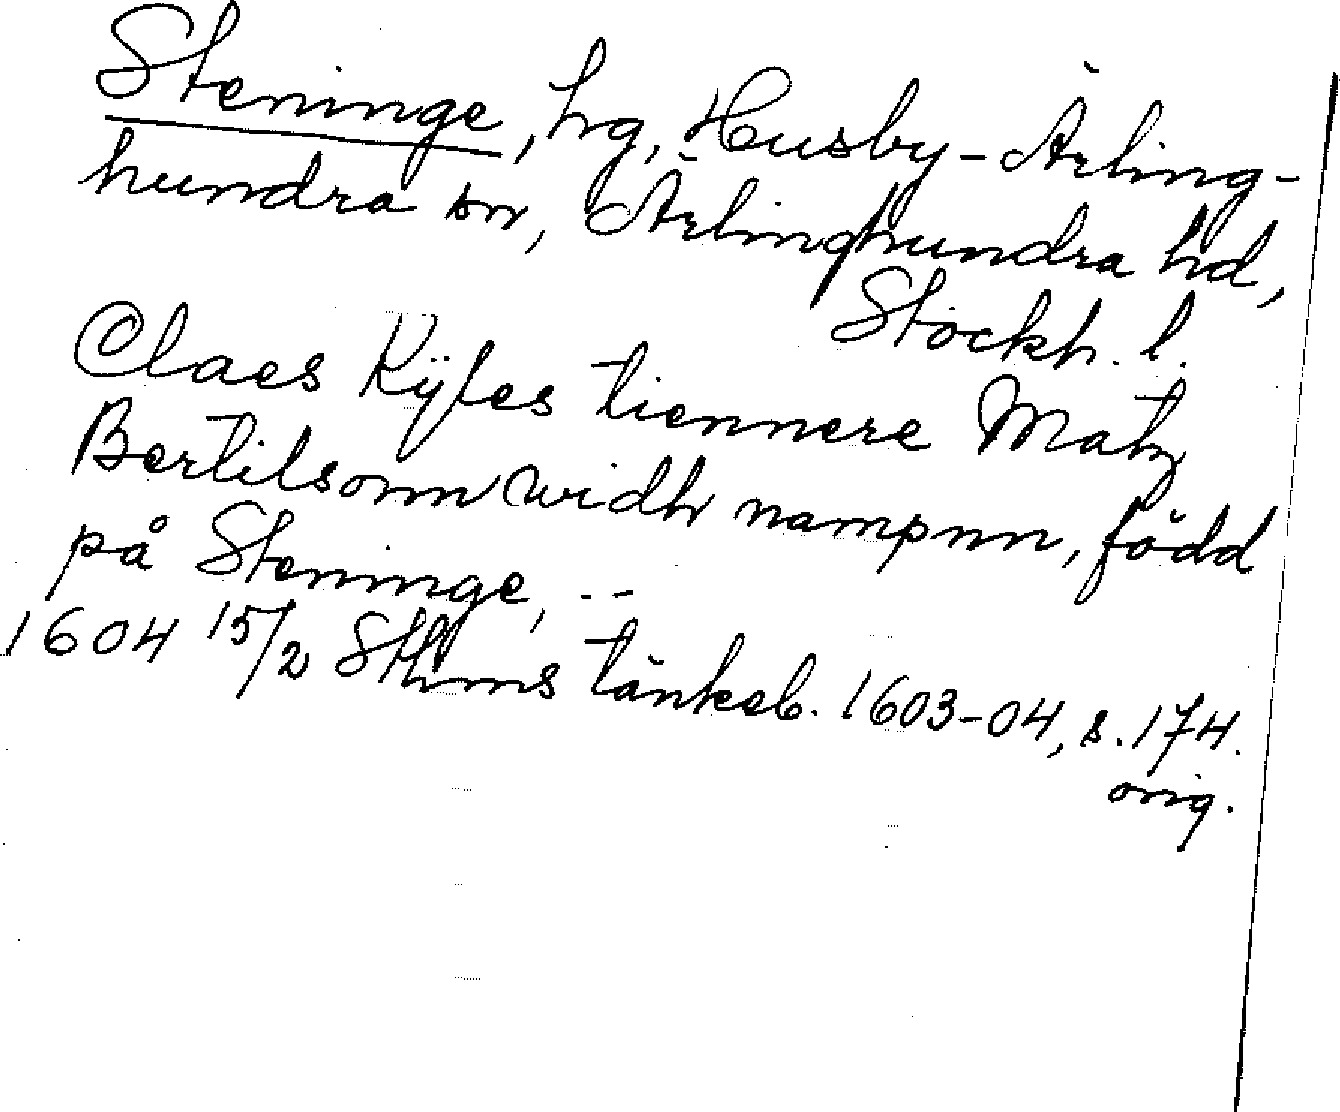 Steninge, hg, Husby-Ärling-
hundra sn, Ärlinghundra hd,
Stockh. l.
Claes Kÿles tiennere Matz
Bertilsonn widh nampnn, född
på Steninge, --
1604 15/2 Sthms tänkeb. 1603-04, s. 174.
orig.